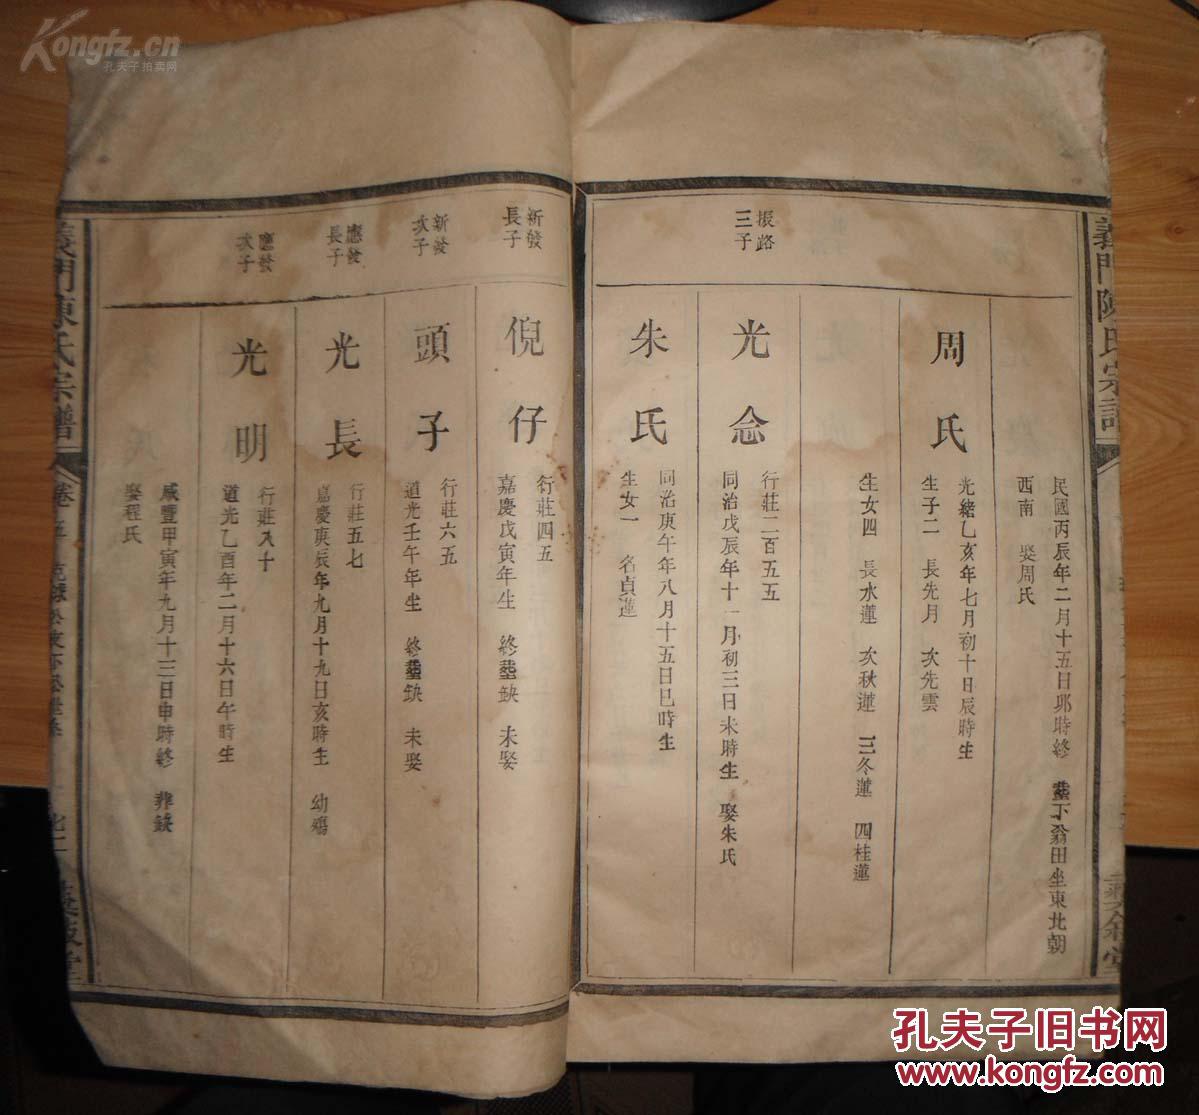 義門陳氏宗譜
義敘堂
民國丙辰年二月十五日卯時終 塟下翁田坐東北朝
西南 娶周氏
周氏
光緒乙亥年七月初十日辰時生
生子二 長先月 次先雲
生女四 長水蓮 次秋蓮 三冬蓮 四桂蓮
振路
三子
光念
行莊二百五五
同治戊辰年十一月初三日未時生 娶朱氏
朱氏
同治庚午年八月十五日巳時生
生女一 名貞蓮
新發
長子
倪仔
行莊四五
嘉慶戊寅年生 終塟缺 未娶
新發
次子
頭子
行莊六五
道光壬午年生 終塟缺 未娶
應發
長子
光長
行莊五七
嘉慶庚辰年九月十九日亥時生 幼殤
應發
次子
光明
行莊八十
道光乙酉年二月十六日午時生
咸豐甲寅年九月十三日申時終 葬缺
娶程氏
義門陳氏宗譜
卷五
義敘堂
Kongfz.cn
孔夫子拍卖网
孔夫子旧书网
www.kongfz.com